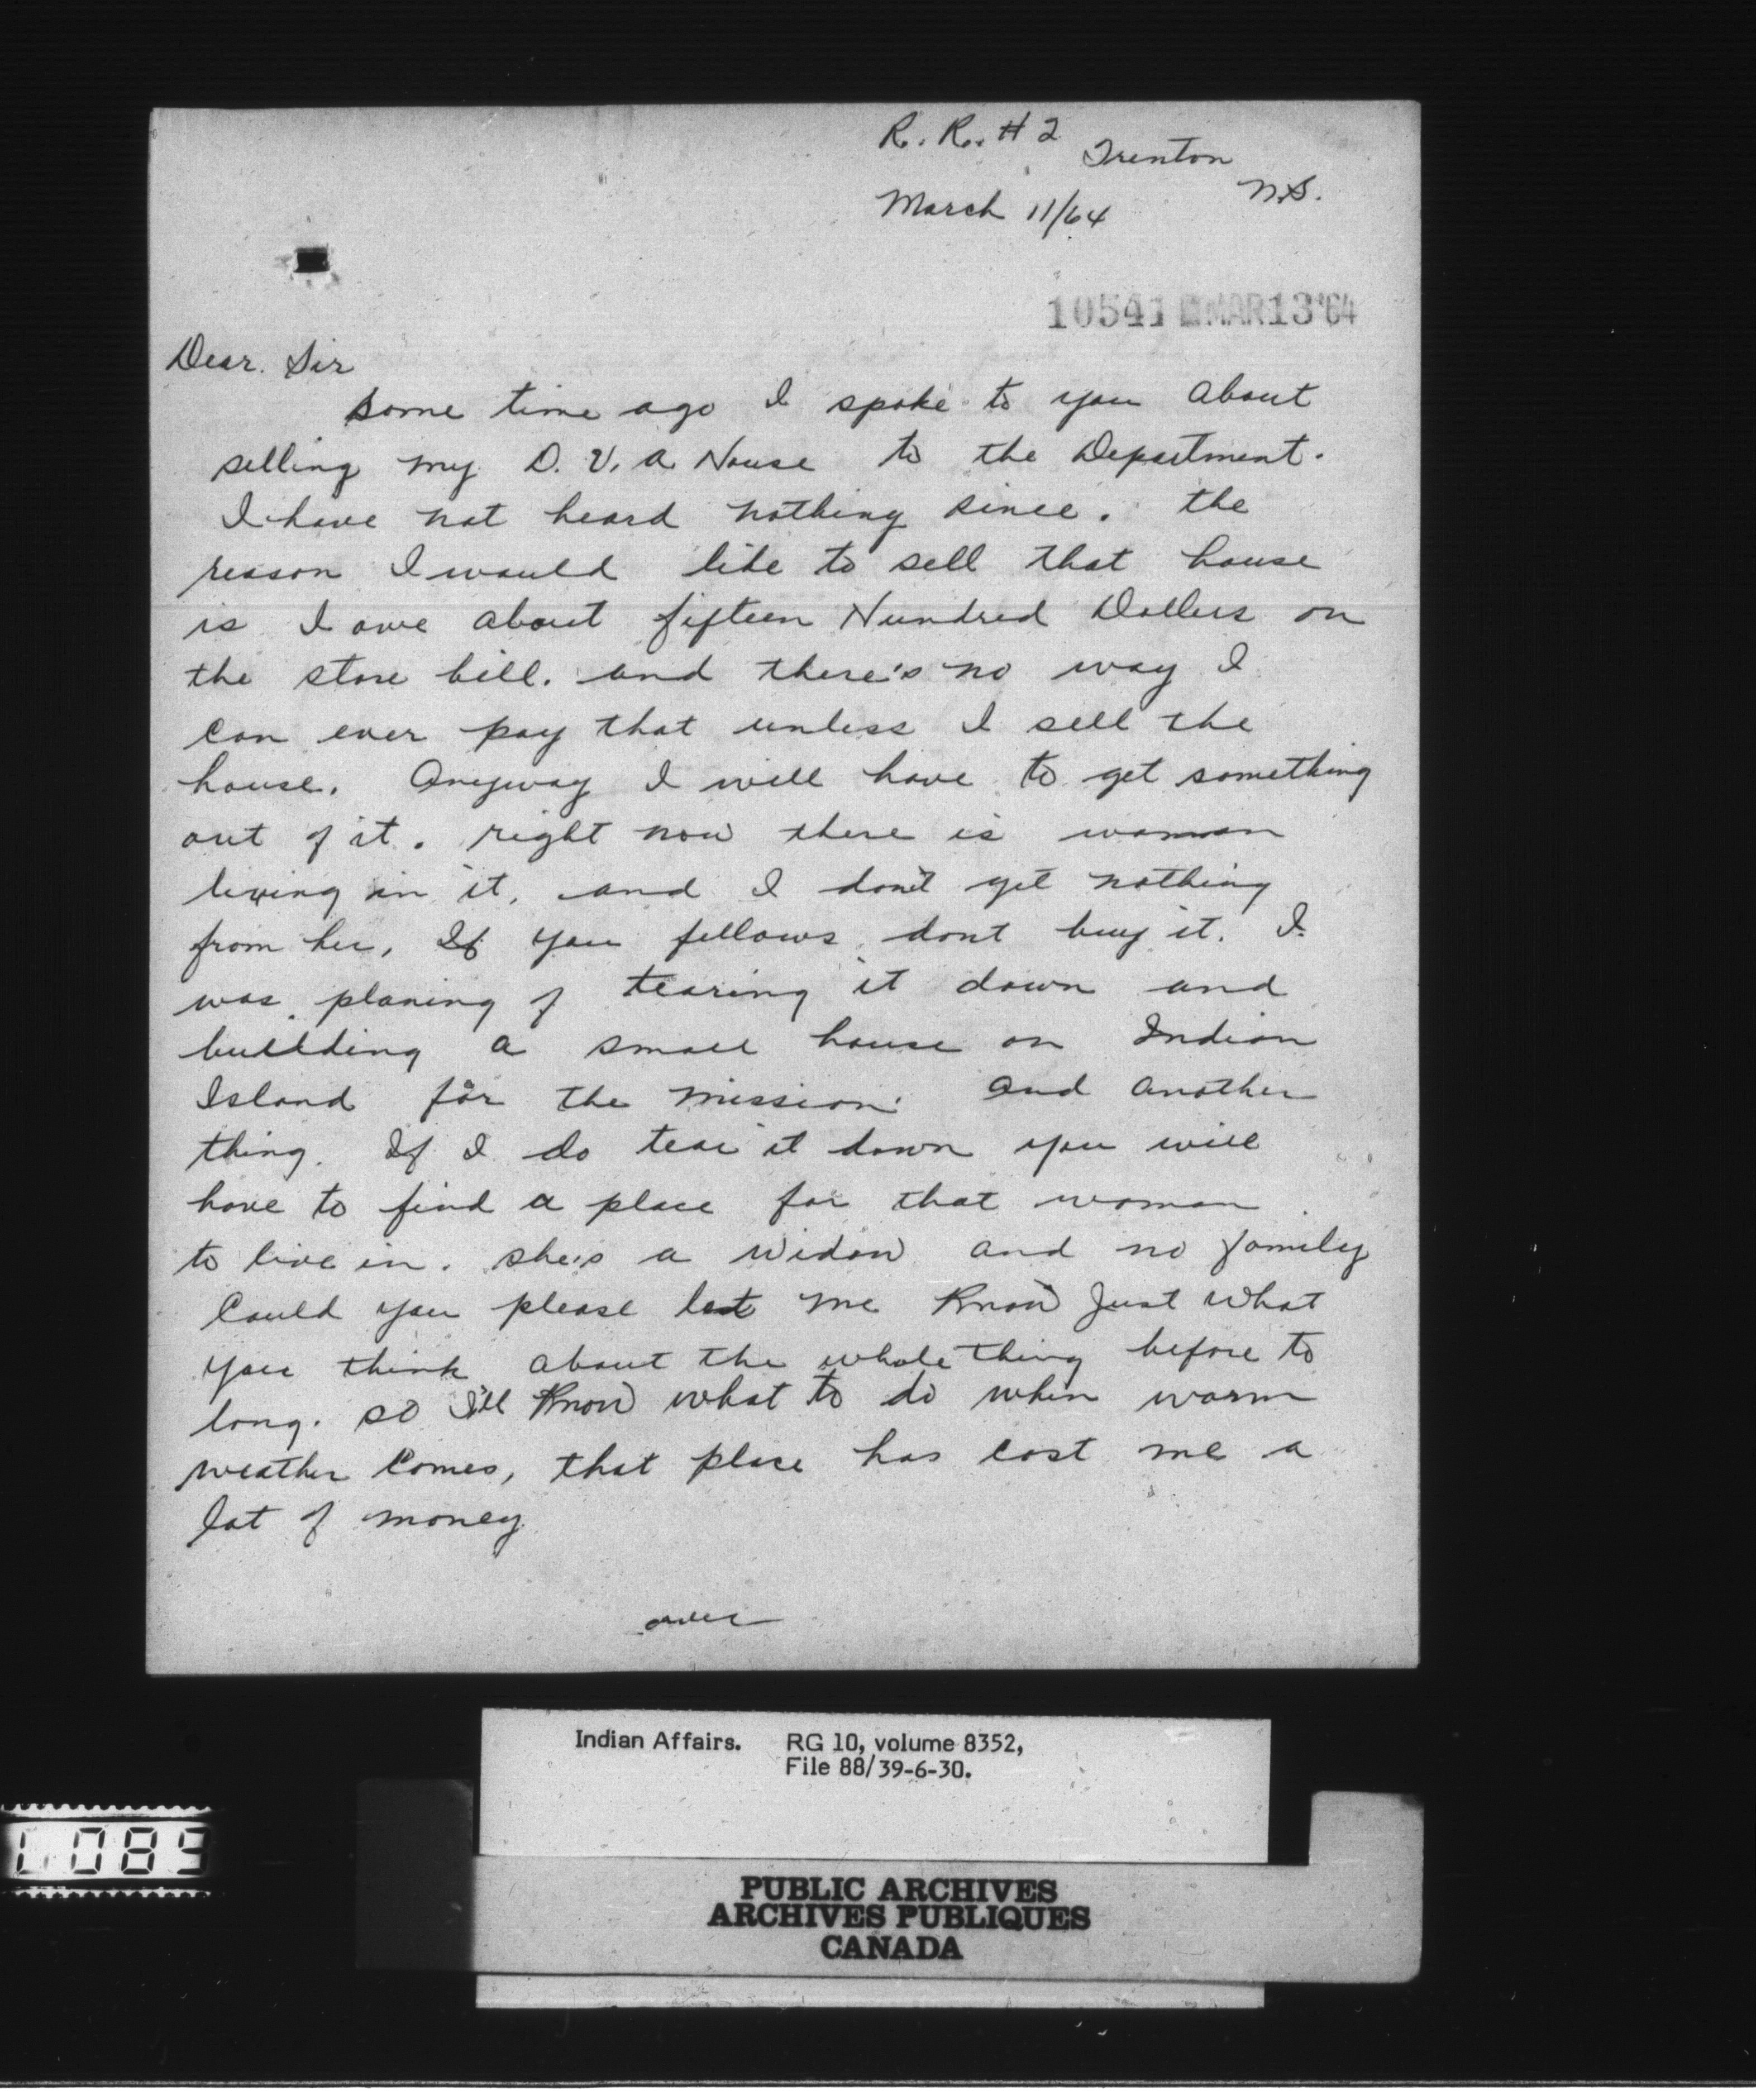 R. R. # 2 Trenton
N.S.
March 11/64
10541 MAR 13 '64
Dear. Sir
some time ago I spoke to you about
selling my D. V. A House to the Department.
I have not heard nothing since. the
reason I would like to sell that house
is I owe about fifteen Hundred Dollers on
the store bill. and there's no way I
can ever pay that unless I sell the
house. Anyway I will have to get something
out of it. right now there is woman
living in it, and I don't get nothing
from her, If you fellows dont buy it. I
was planing of tearing it down and
buillding a small house on Indian
Island for the mission. And another
thing. If I do tear it down you will
have to find a place for that woman
to live in. she's a widow and no family
Could you please let me know Just what
you think about the whole thing before to
long. so I'll know what to do when warm
weather comes, that place has cost me a
lot of money.
over
Indian Affairs. RG 10, volume 8352,
File 88/39-6-30.
PUBLIC ARCHIVES
ARCHIVES PUBLIQUES
CANADA